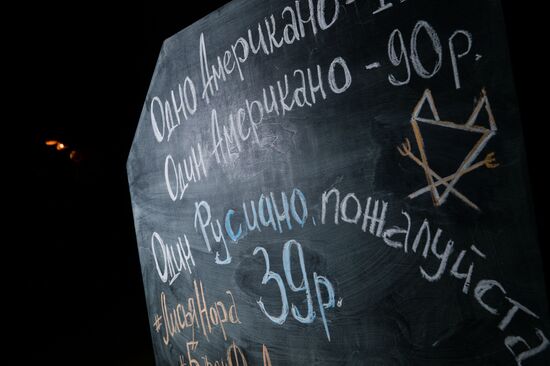 Одно Американо -
Один Американо - 90р.
Один Русиано, пожалуйста
39р.
#ЛисьяНора